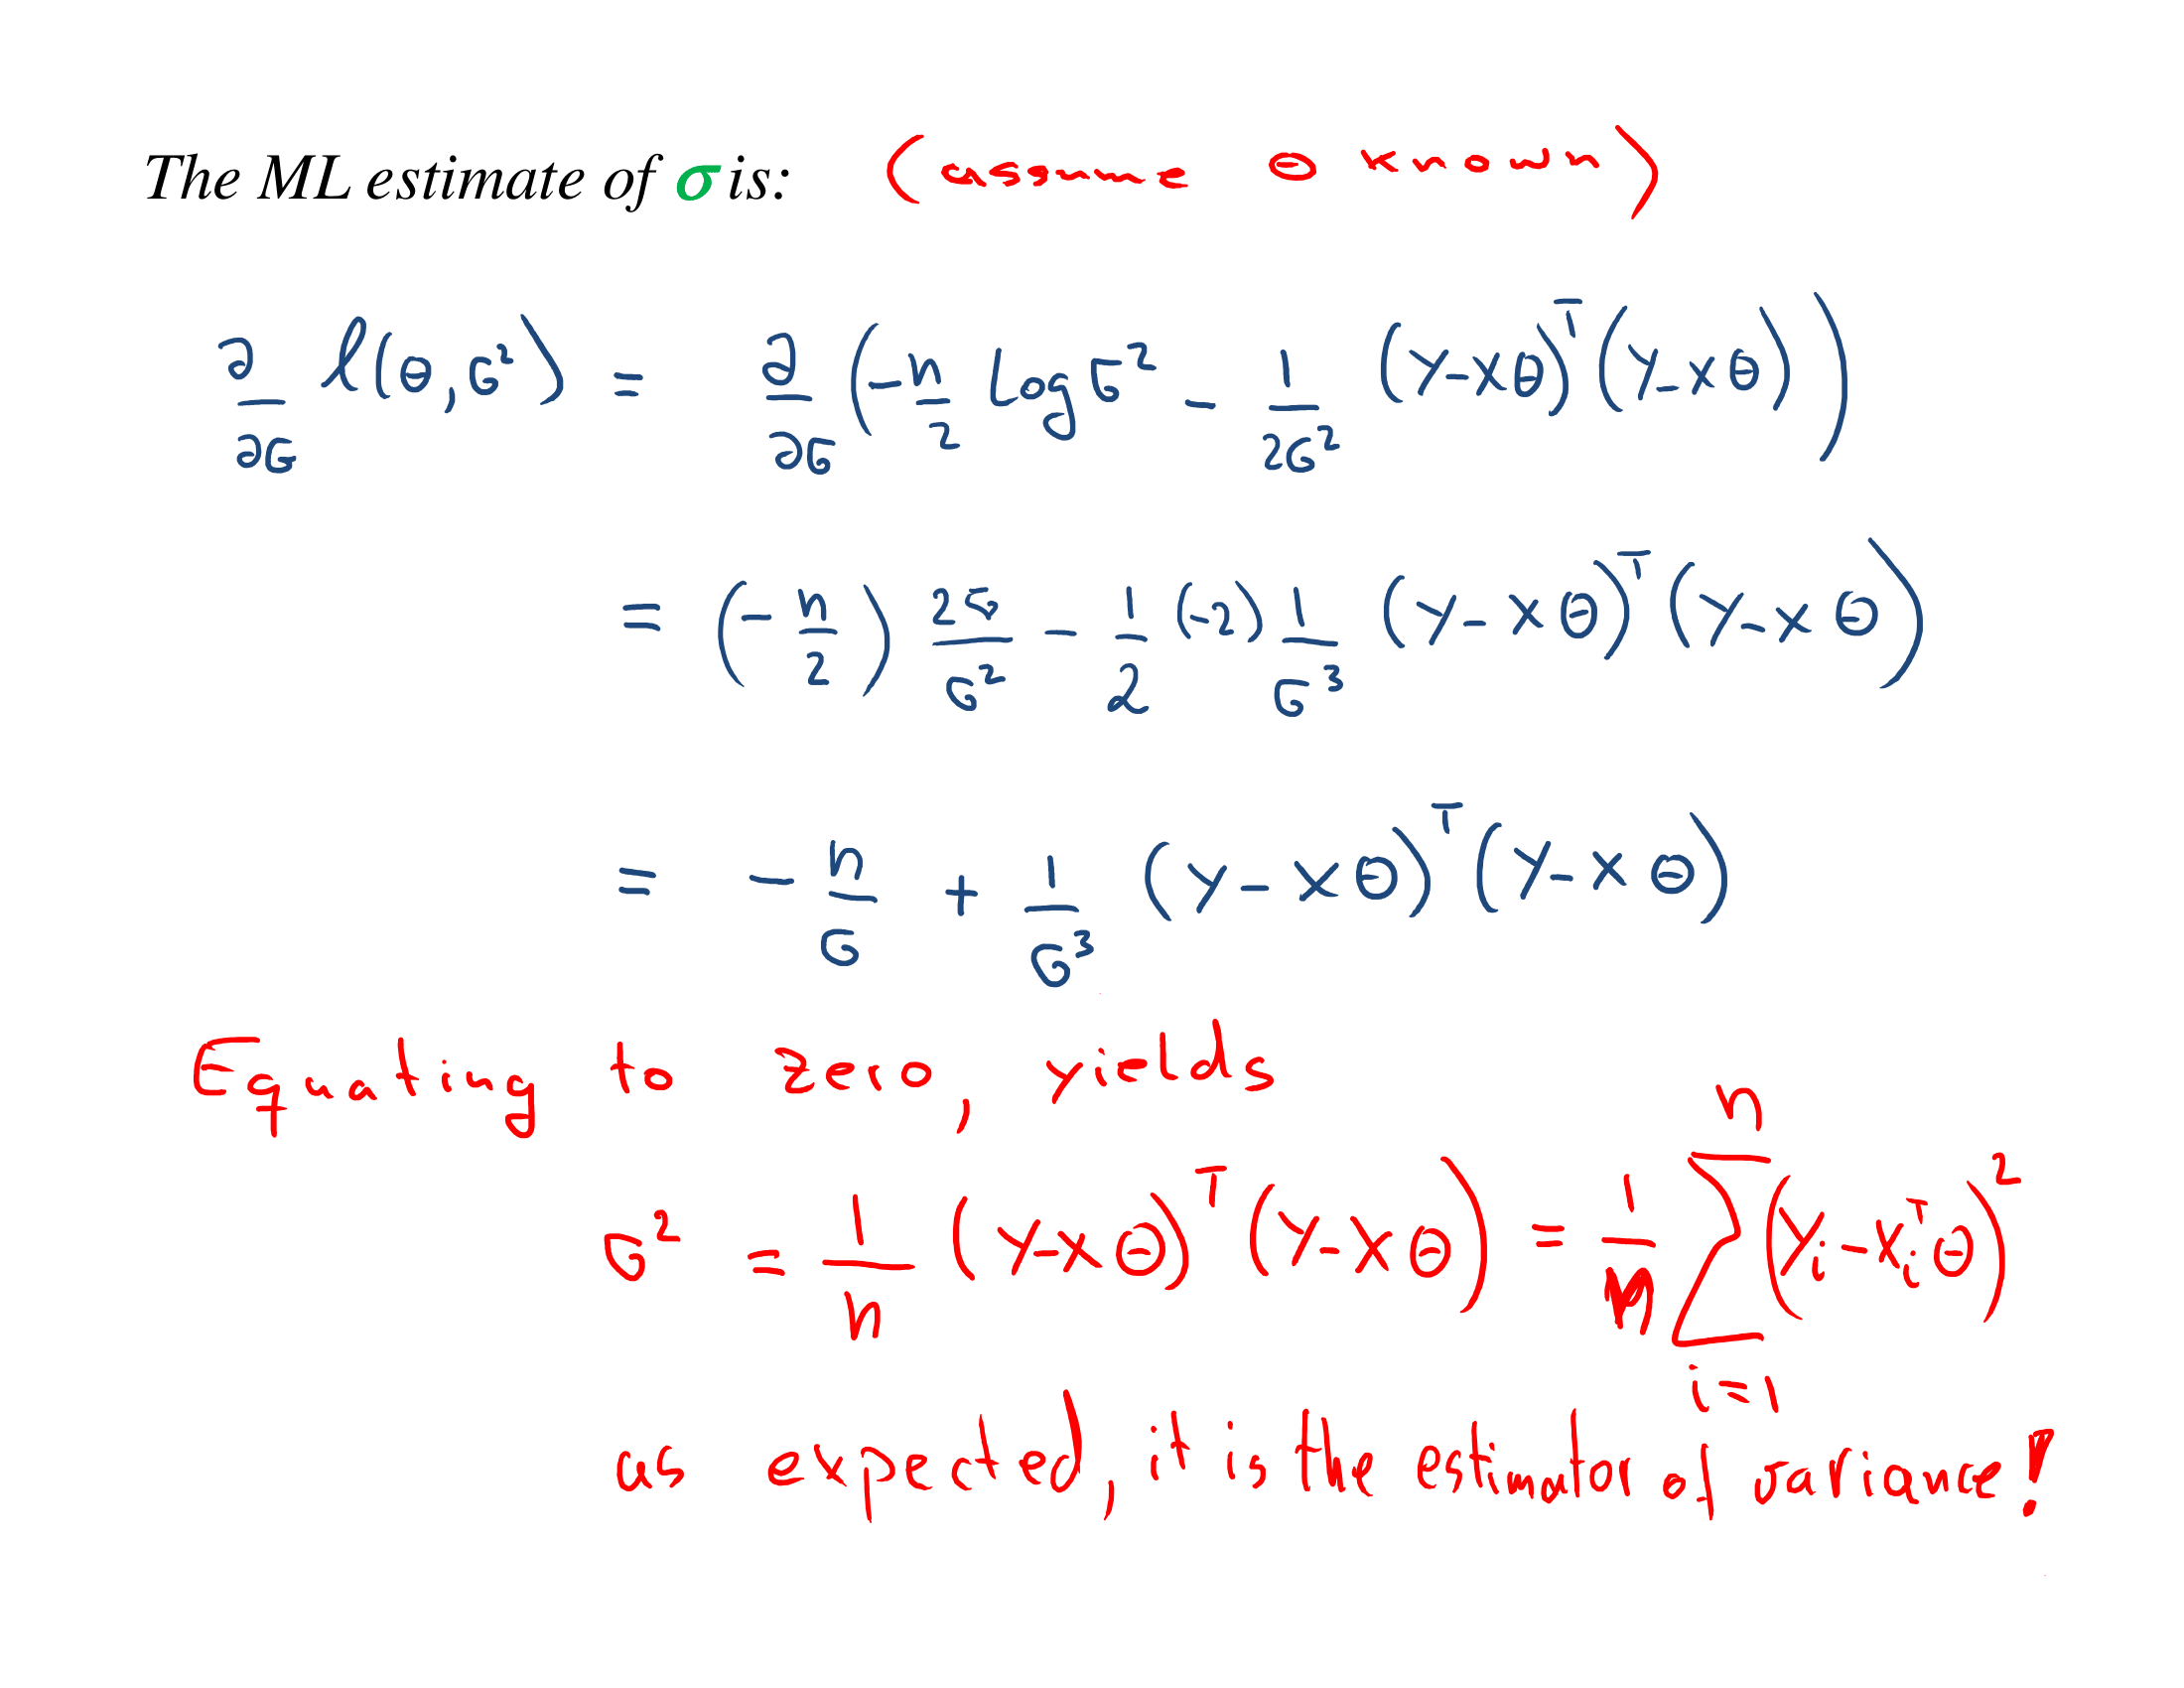 The ML estimate of σ is: (assume θ known)
∂/∂σ ℓ(θ, σ²) = ∂/∂σ (-n/2 Log σ² - 1/(2σ²) (Y-Xθ)ᵀ(Y-Xθ))
= (-n/2) 2σ/σ² - 1/2 (-2) 1/σ³ (Y-Xθ)ᵀ(Y-Xθ)
= -n/σ + 1/σ³ (Y-Xθ)ᵀ(Y-Xθ)
Equating to zero, yields
σ² = 1/n (Y-Xθ)ᵀ(Y-Xθ) = 1/n ∑ⁿᵢ₌₁ (Yᵢ-Xᵢᵀθ)²
as expected, it is the estimator of variance!